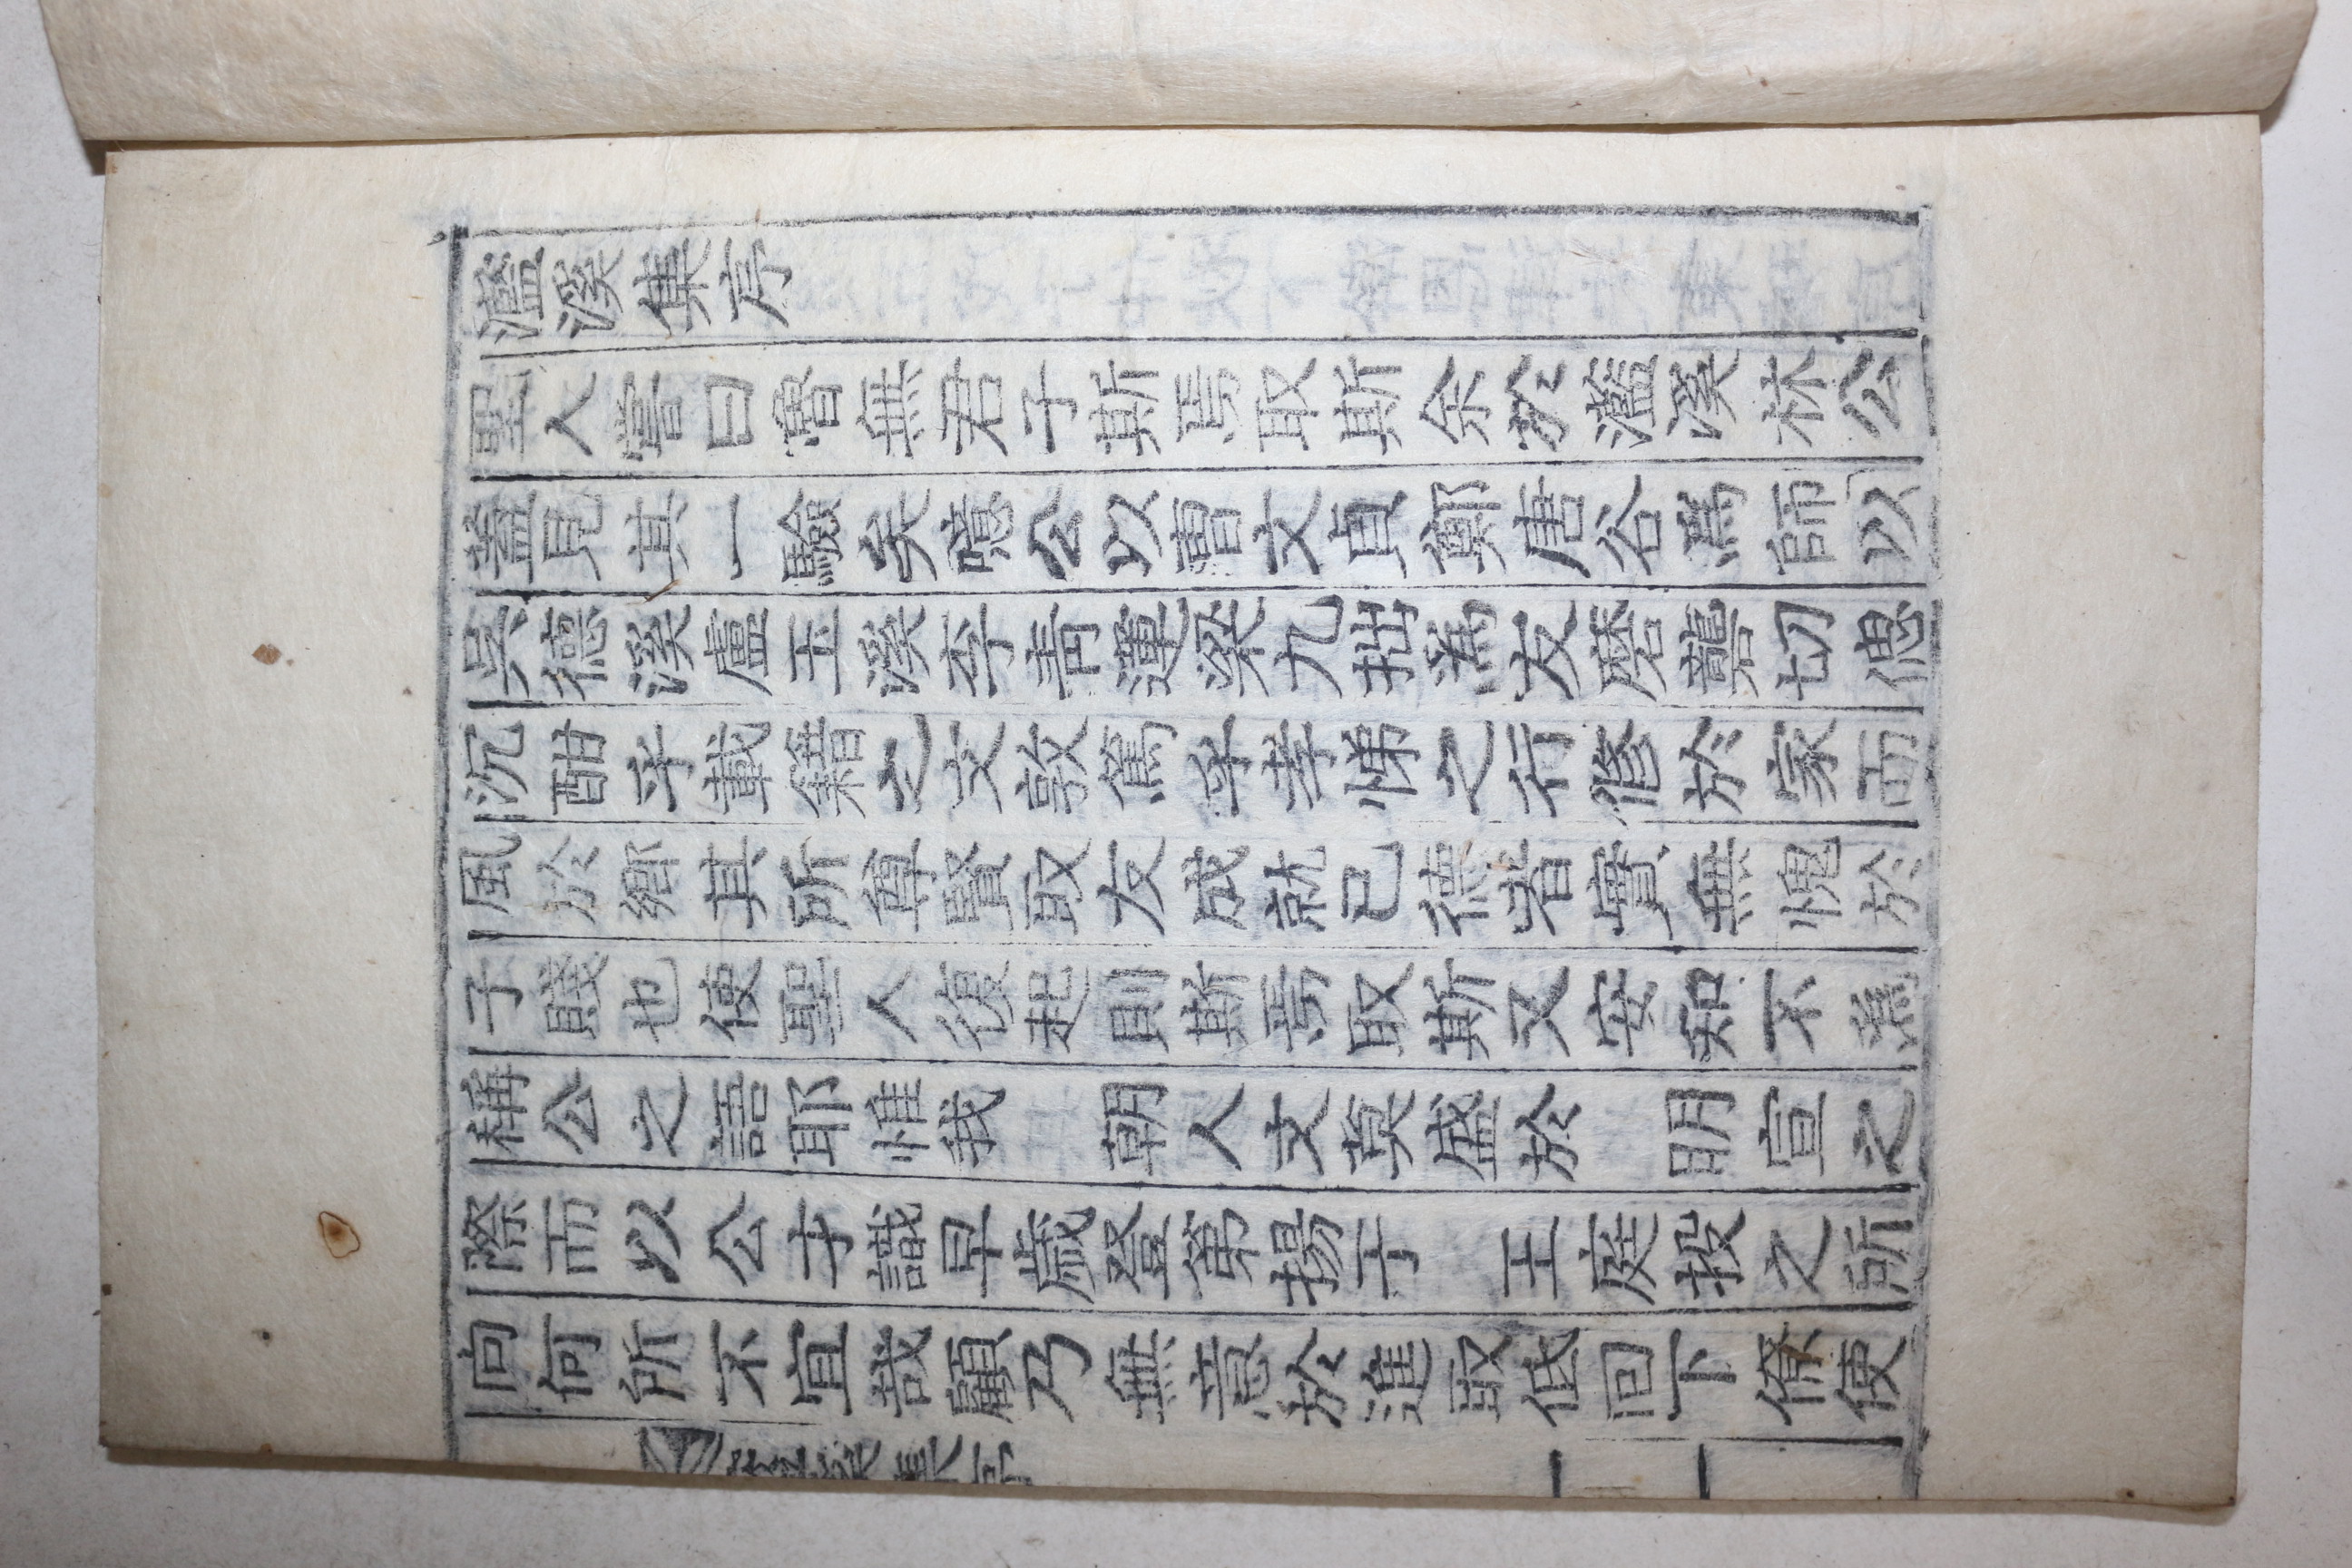 灆溪集序
聖人嘗曰魯無君子斯焉取斯余於灆溪林公
蓋見其一驗矣噫公以曺文貞鄭唐谷爲師以
吳德溪盧玉溪李靑蓮梁九拙爲友磨礱切偲
沉酣乎載籍之文敦篤乎孝悌之行修於家而
風於鄉其所尊賢取友成就已德者實無愧於
子賤也使聖人復起則斯焉取斯又安知不爲
稱公之語耶惟我 朝人文莫盛於 明宣之
際而以公才識早歲登第揚于 王庭投之所
向何所不宜哉顧乃無意於進取低回下僚使
灆溪集序
一